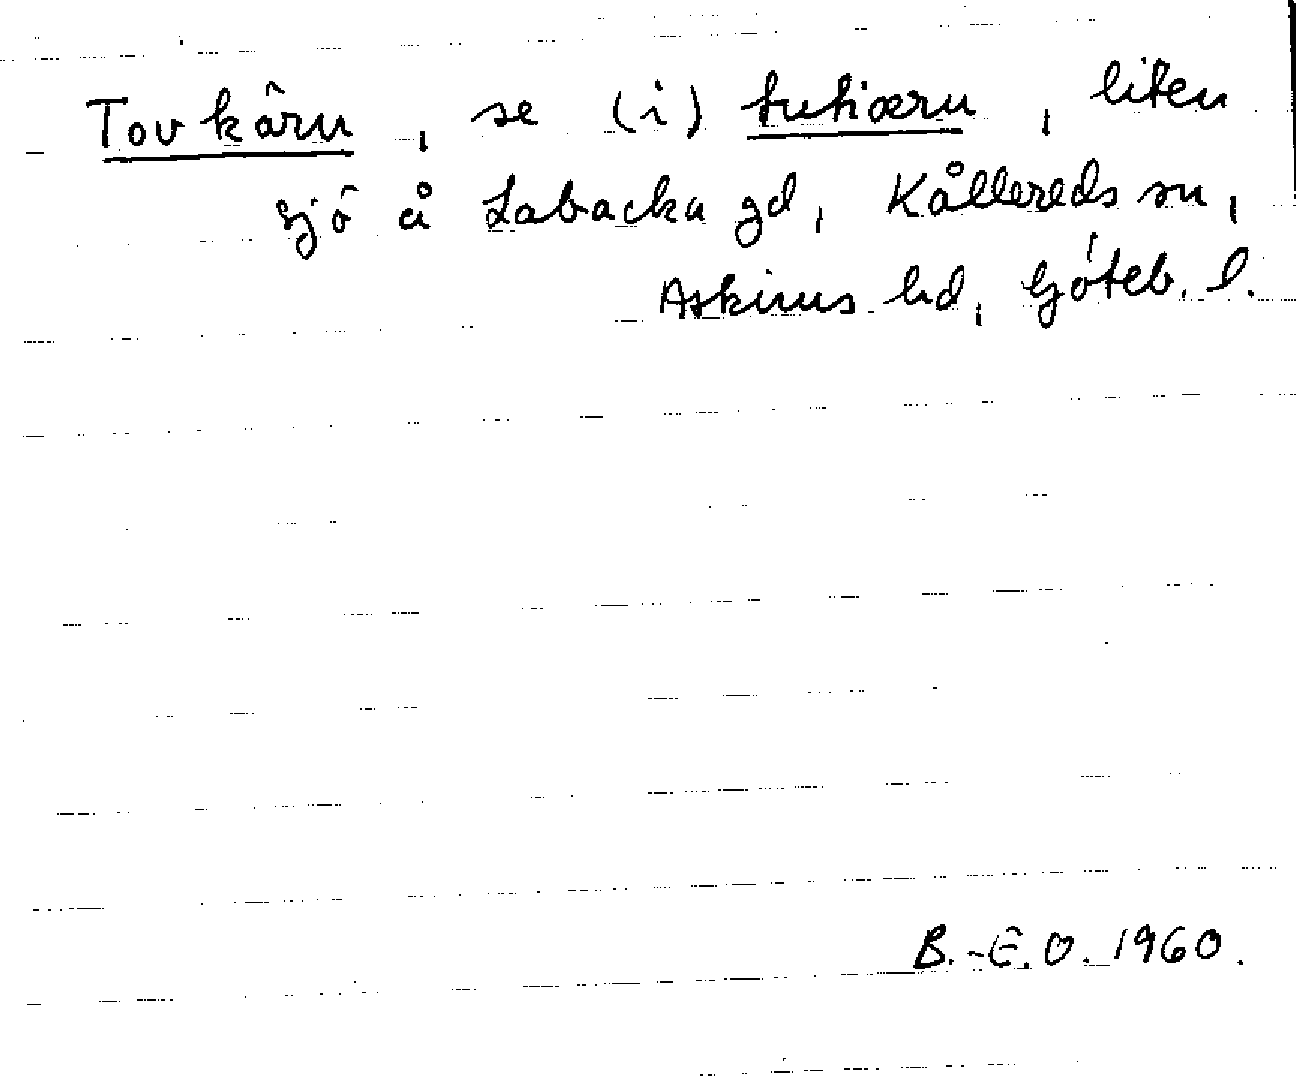 Tovkärn, se (i) tutiærn, liten
sjö å Labacka gd, Kållereds sn,
Askims hd, Göteb. l.
B.-E.O. 1960.